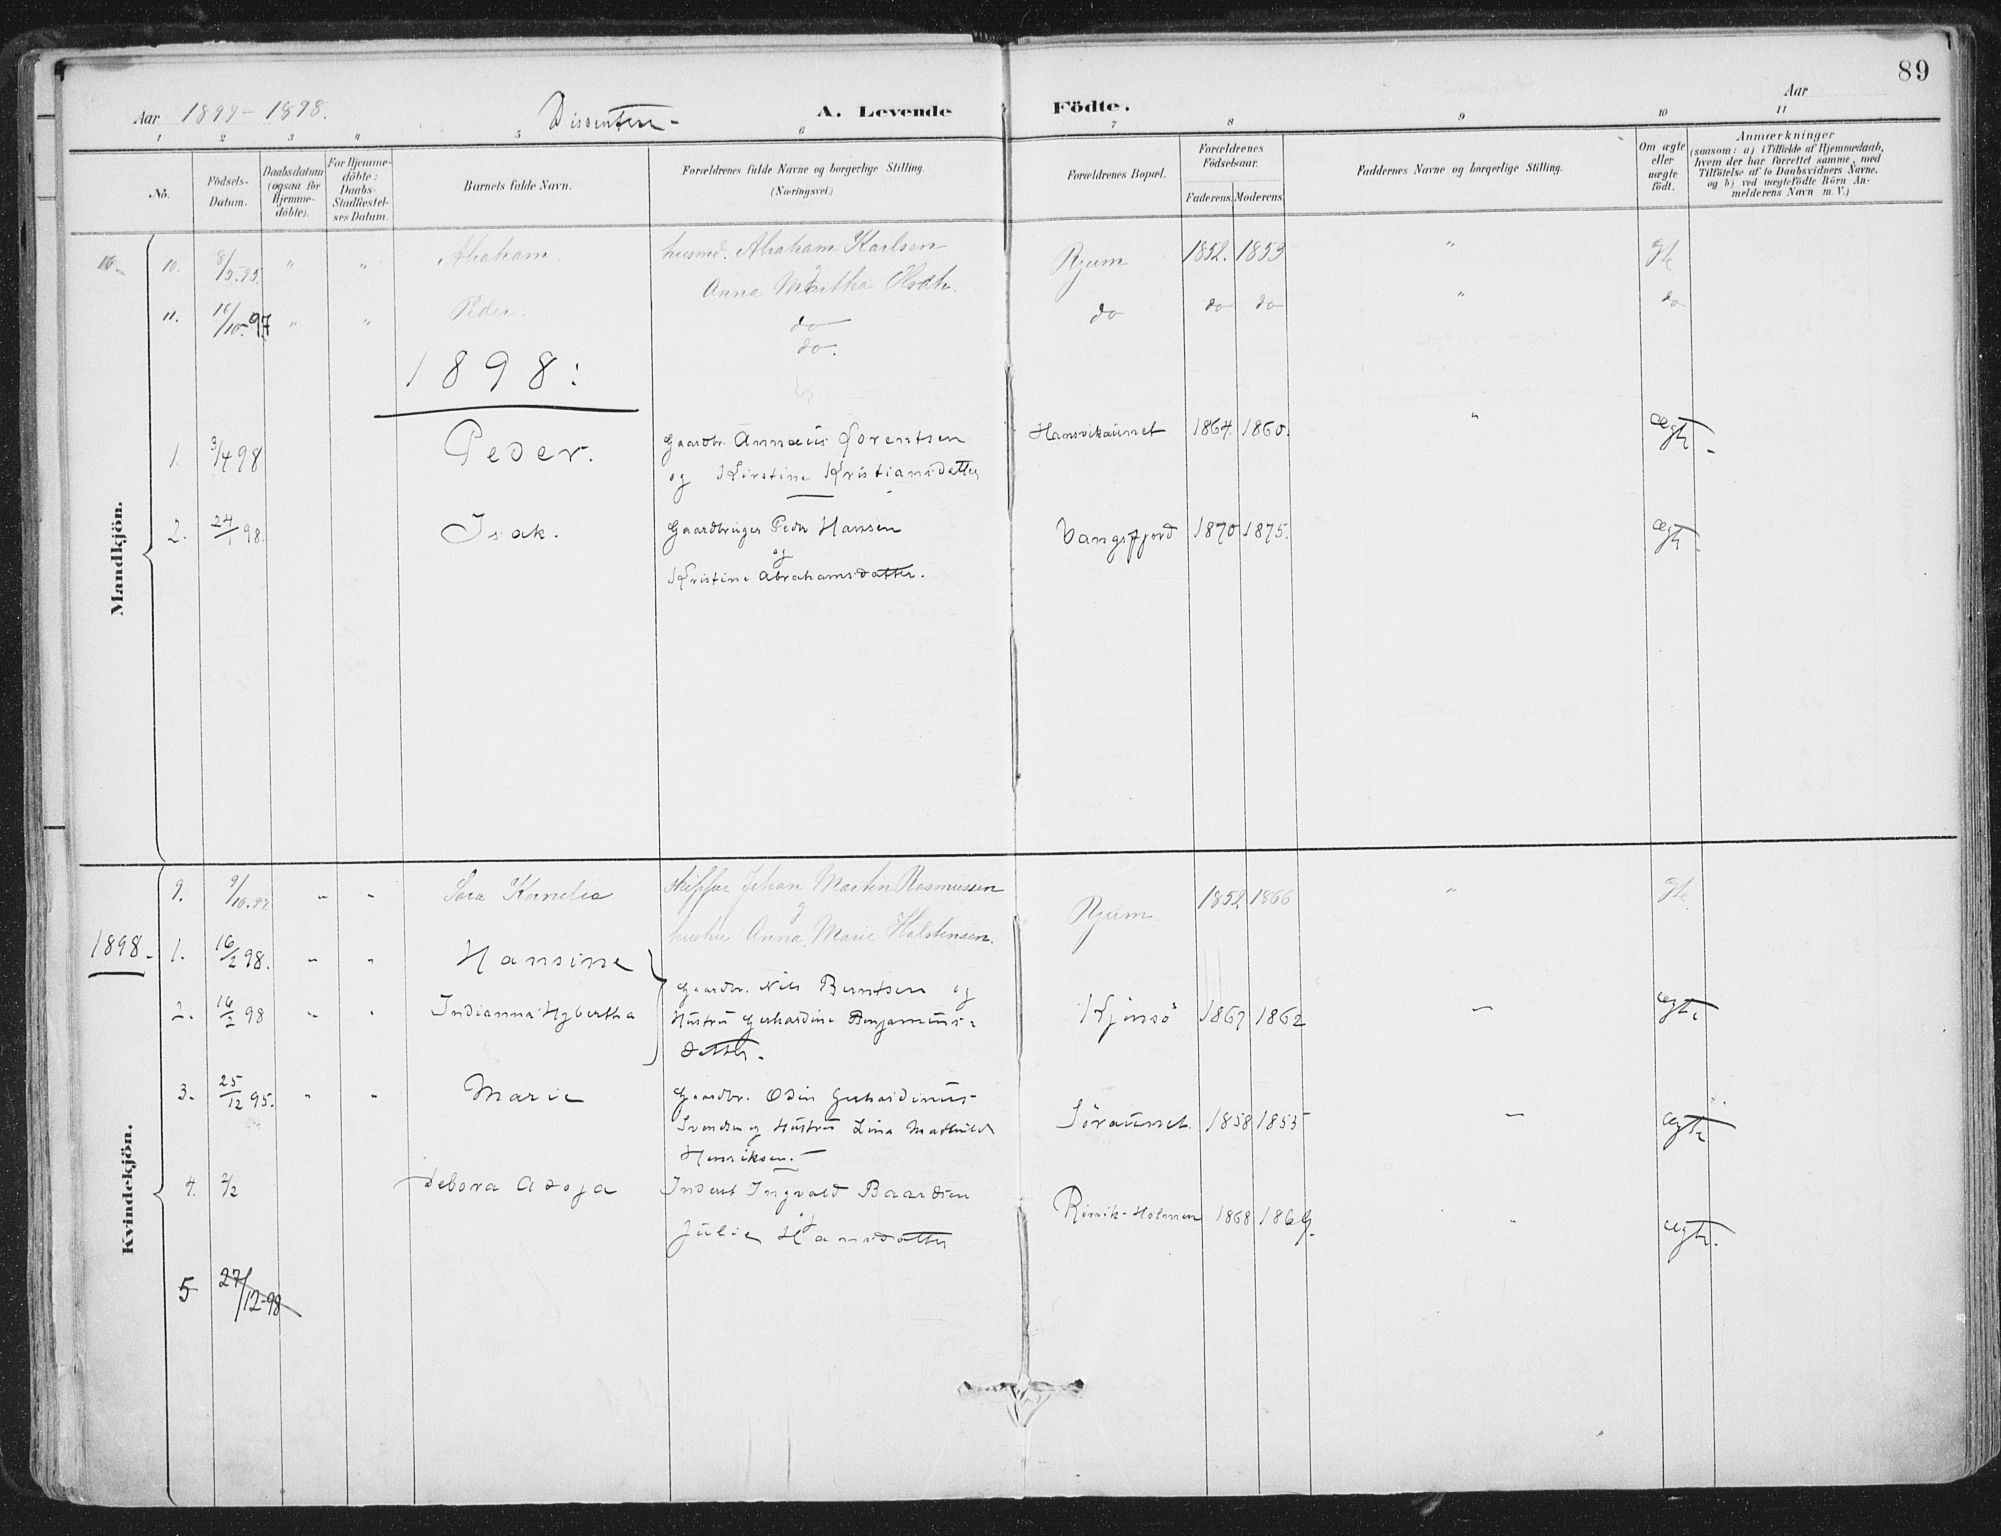 89
Aar 1897-1898. Dissentere A. Levende Födte. Aar
1 2 3 " 5 6 7 8 9 10 11
No. Födsels-Datum. Daabsdatum (ogsaa for Hjemme-döbte). For Hjemme-döbte: Daabs-Stadfæstel-ses Datum. Barnets fulde Navn. Forældrenes fulde Navne og borgerlige Stilling. (Næringsvei.) Forældrenes Bopæl. Forældrenes Födselsaar. Faderens. Moderens. Faddernes Navne og borgerlige Stilling. Om ægte eller uægte födt. Anmærkninger (saasom: a) i Tilfælde af Hjemmedaab, hvem der har forrettet samme, med Tilföielse af to Daabsvidners Navne, og b) ved uægtefödte Börn An-melderens Navn m. V.)
Mandkjön.
10. 10. 8/5.95. " " Abraham husmd. Abraham Karlsen Rjum 1852. 1853 " gte
Anna Martha
11. 16/10.97 " " Peder. do do do do " do
do.
1898:
1. 3/4 98 Peder. Gaardbr. Annæus Lorentsen Hansvikaunet 1864. 1860. " Ægte.
og Kirstine Kristiansdatter
2. 24/1 98. Isak. Gaardbruger Peder Hansen Vangsfjord 1870 1875. Ægte.
og
Kristine Abrahamsdatter.
Kvindekjön.
9. 9/10.97 " " Sara Kornelia skipper Johan Martin Rasmussen Rjum. 1852 1866 " gte
og
hustru Anna Marie Holstensen.
1898. 1. 16/2 98. " " Hansine
Gaardbr. Nils Berntsen og
2. 16/2 98 " " Indianna Hybertha Hustru Gerhardine Benjamins- Kjinsö 1867 1862 " Ægte
datter.
3. 25/12 95. " " Marie Gaardbr. Odin Gerhardinus
Svendsen og Hustru Lina Mathilde Söraunet. 1858 1855 " Ægte
Henriksen.
4. 2/2 Debora Asoja Inderst Ingvald Baardsen Rörvik-Holmen 1868 1869. " Ægte.
og
Julie Hansdatter
5 27/12-98